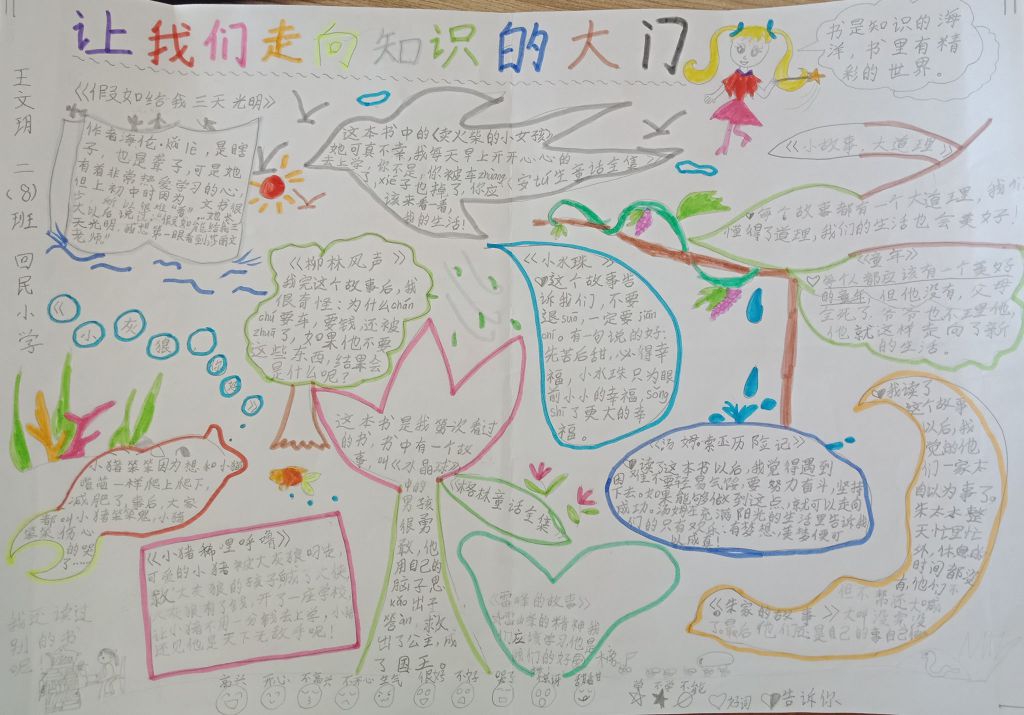 让我们走向知识的大门
书是知识的海
洋,书里有精
彩的世界。
王文玥 二(8)班 回民小学
《假如给我三天光明》
作者海伦·
子,也是聋子,可是她
有着非常热爱学习的心,
但上初中时因为
这本书中的《卖火柴的小女孩》
她可真不幸,我每天早上开开心心的
去上学,你不是,你被车zhuàng
了,xié子也掉了,你应
该来看一看,
我的生活!
《安tú生童话全集》
《小故事,大道理》
每个故事都有一个大道理,我们
懂得了道理,我们的生活也会美好!
《童年》
每个人都应该有一个美好
的童年,但他没有,父母
全死了,爷爷也不理他,
他就这样走向了新
的生活。
《柳林风声》
我完这个故事后,我
很奇怪:为什么chán
chú要车,要钱,还被
zhuā了,如果他不要
这些东西,结果会
是什么呢?
《小水珠》
这个故事告
诉我们,不要
退suō,一定要jiān
chí。有一句说的好:
先苦后甜,必得幸
福,小水珠只为眼
前小小的幸福,sòng
shī了更大的幸
福。
《小灰狼
》
这本书是我第一次看过
的书,书中有一个故
事,叫《水晶球》
中的
男孩
很勇
敢,他
用自己的
脑子思
kǎo出了
答àn,救
出了公主,成
了国王。
《格林童话全集》
小猪笨笨因为想和小猫
喵喵一样爬上爬下,
减肥了,事后,大家
都叫小猪笨笨鬼,小猪
笨笨伤心
的哭
了……
《小猪稀哩呼噜》
可爱的小猪被大灰狼叼走,
救大灰狼的孩子
大灰狼有了钱,开了一座学校,
让小猪不用一分钱去上学,小
还见他是天下无敌手呢!
《汤姆·索亚历险记》
读了这本书以后,我觉得遇到
困难不要轻易气馁,要努力奋斗,坚持
下去。如果能够做到这点,就可以走向
成功。汤姆在充满阳光的生活里告诉我
们的只有欢乐,有梦想,美梦便可
以成真!
《雷锋的故事》
雷锋的精神我
们应该学习,他是
我们的好
我读了
这个故事
以后,我
觉的他
们一家太
自以为事了。
朱太太整
天忙里忙
外,休息的
时间都没
有,他们
但不帮还大喊
大叫,没完没
了。最后他们还是自己的事自己做
《朱家的故事》
我还读过
别的书
呢
高兴 开心 不高兴 不开心 生气 很好 不好
不能
好词
告诉你